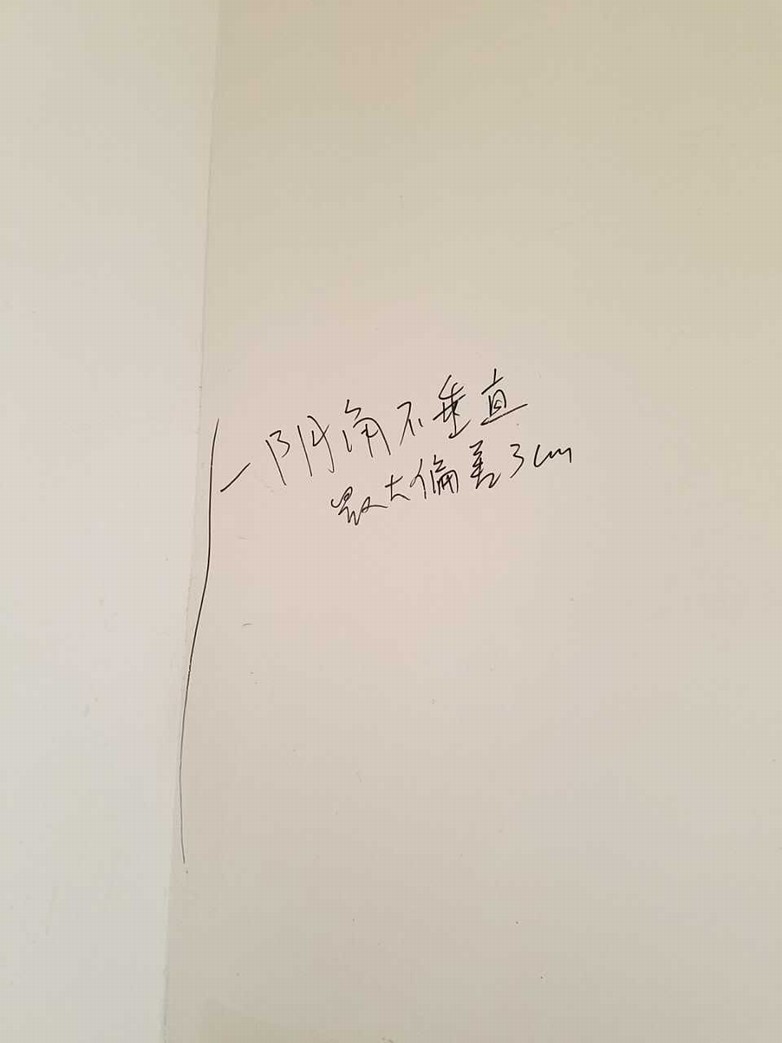 阴角不垂直
最大偏差3cm